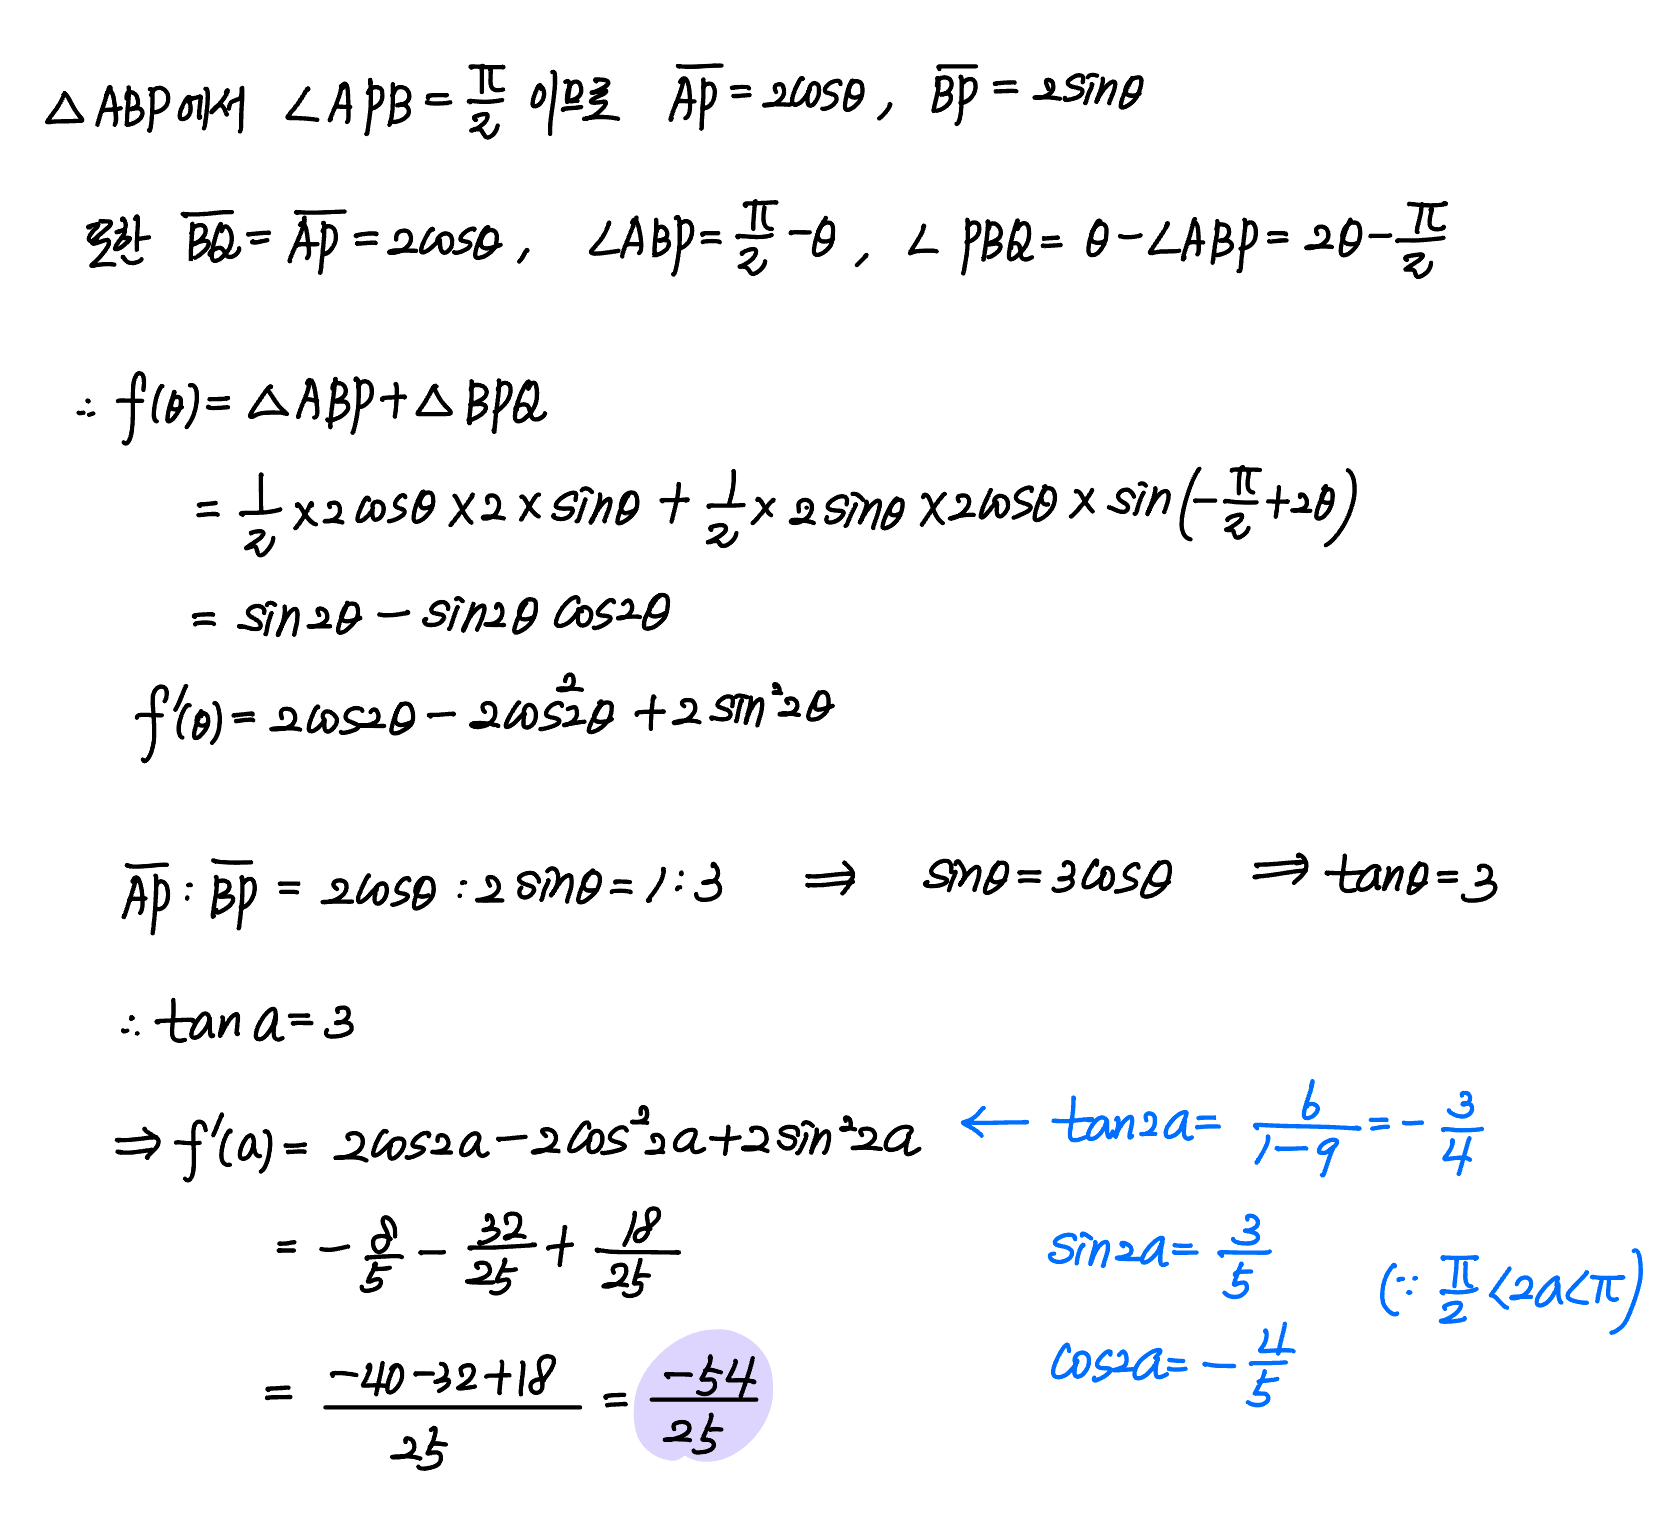 △ABP에서 ∠APB = π/2 이므로 A̅P̅ = 2cosθ, B̅P̅ = 2sinθ
또한 B̅Q̅ = A̅P̅ = 2cosθ, ∠ABP = π/2 - θ, ∠PBQ = θ - ∠ABP = 2θ - π/2
∴ f(θ) = △ABP + △BPQ
= 1/2 × 2cosθ × 2 × sinθ + 1/2 × 2sinθ × 2cosθ × sin(-π/2 + 2θ)
= sin2θ - sin2θ cos2θ
f'(θ) = 2cos2θ - 2cos²2θ + 2sin²2θ
A̅P̅ : B̅P̅ = 2cosθ : 2sinθ = 1 : 3 ⇒ sinθ = 3cosθ ⇒ tanθ = 3
∴ tan a = 3
⇒ f'(a) = 2cos2a - 2cos²2a + 2sin²2a ← tan2a = 6/(1-9) = -3/4
= -8/5 - 32/25 + 18/25
sin2a = 3/5 (∵ π/2 < 2a < π)
= (-40-32+18)/25 = -54/25
cos2a = -4/5